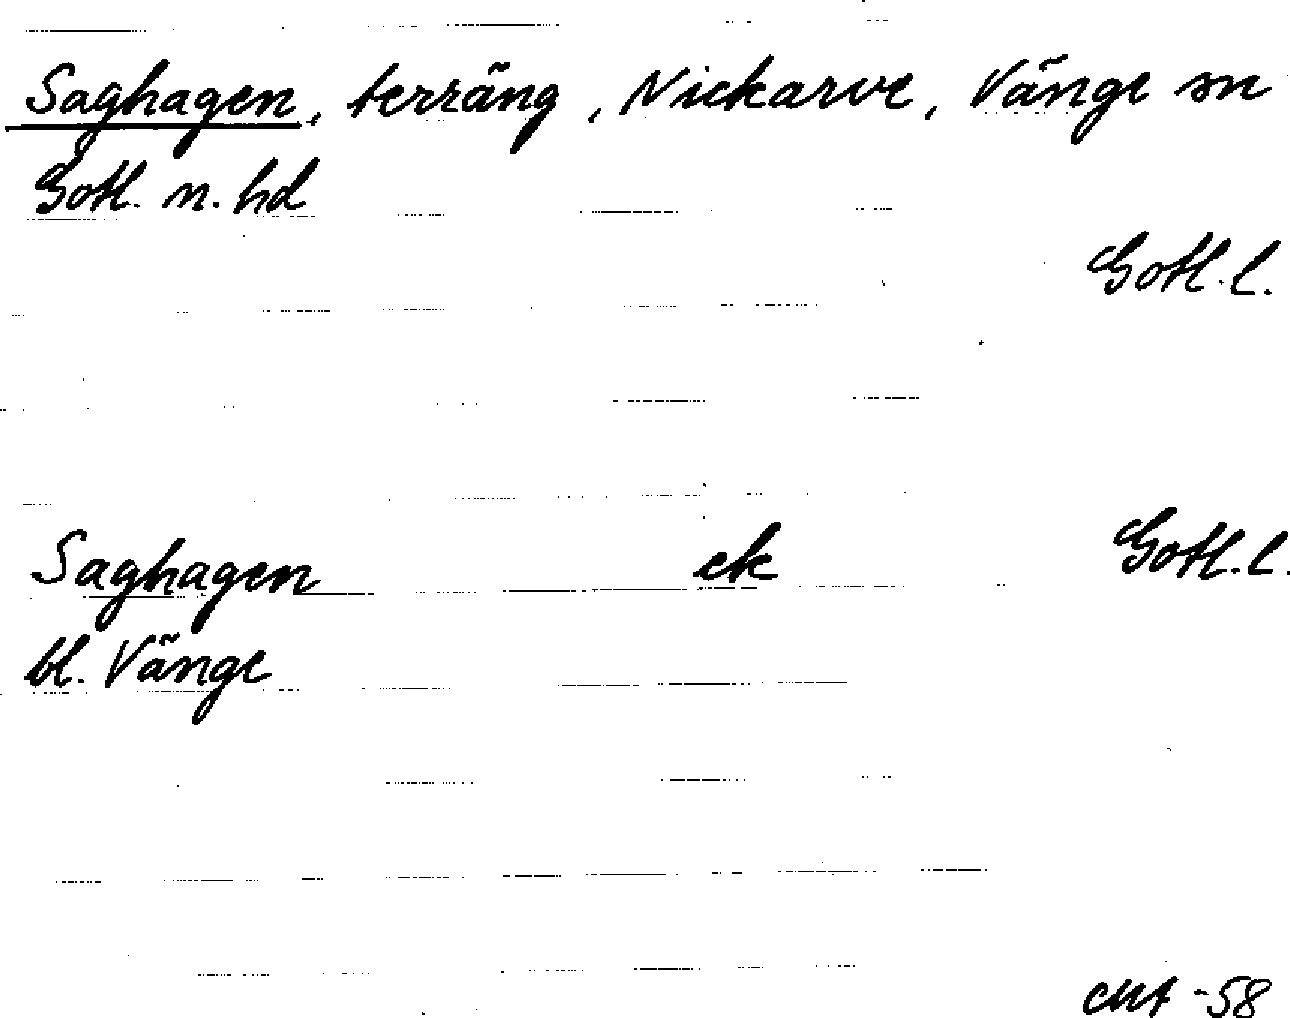 Saghagen, terräng, Nickarve, Vänge sn
Gotl. n. hd
Gotl. l.
Saghagen ek Gotl. l.
bl. Vänge
-58